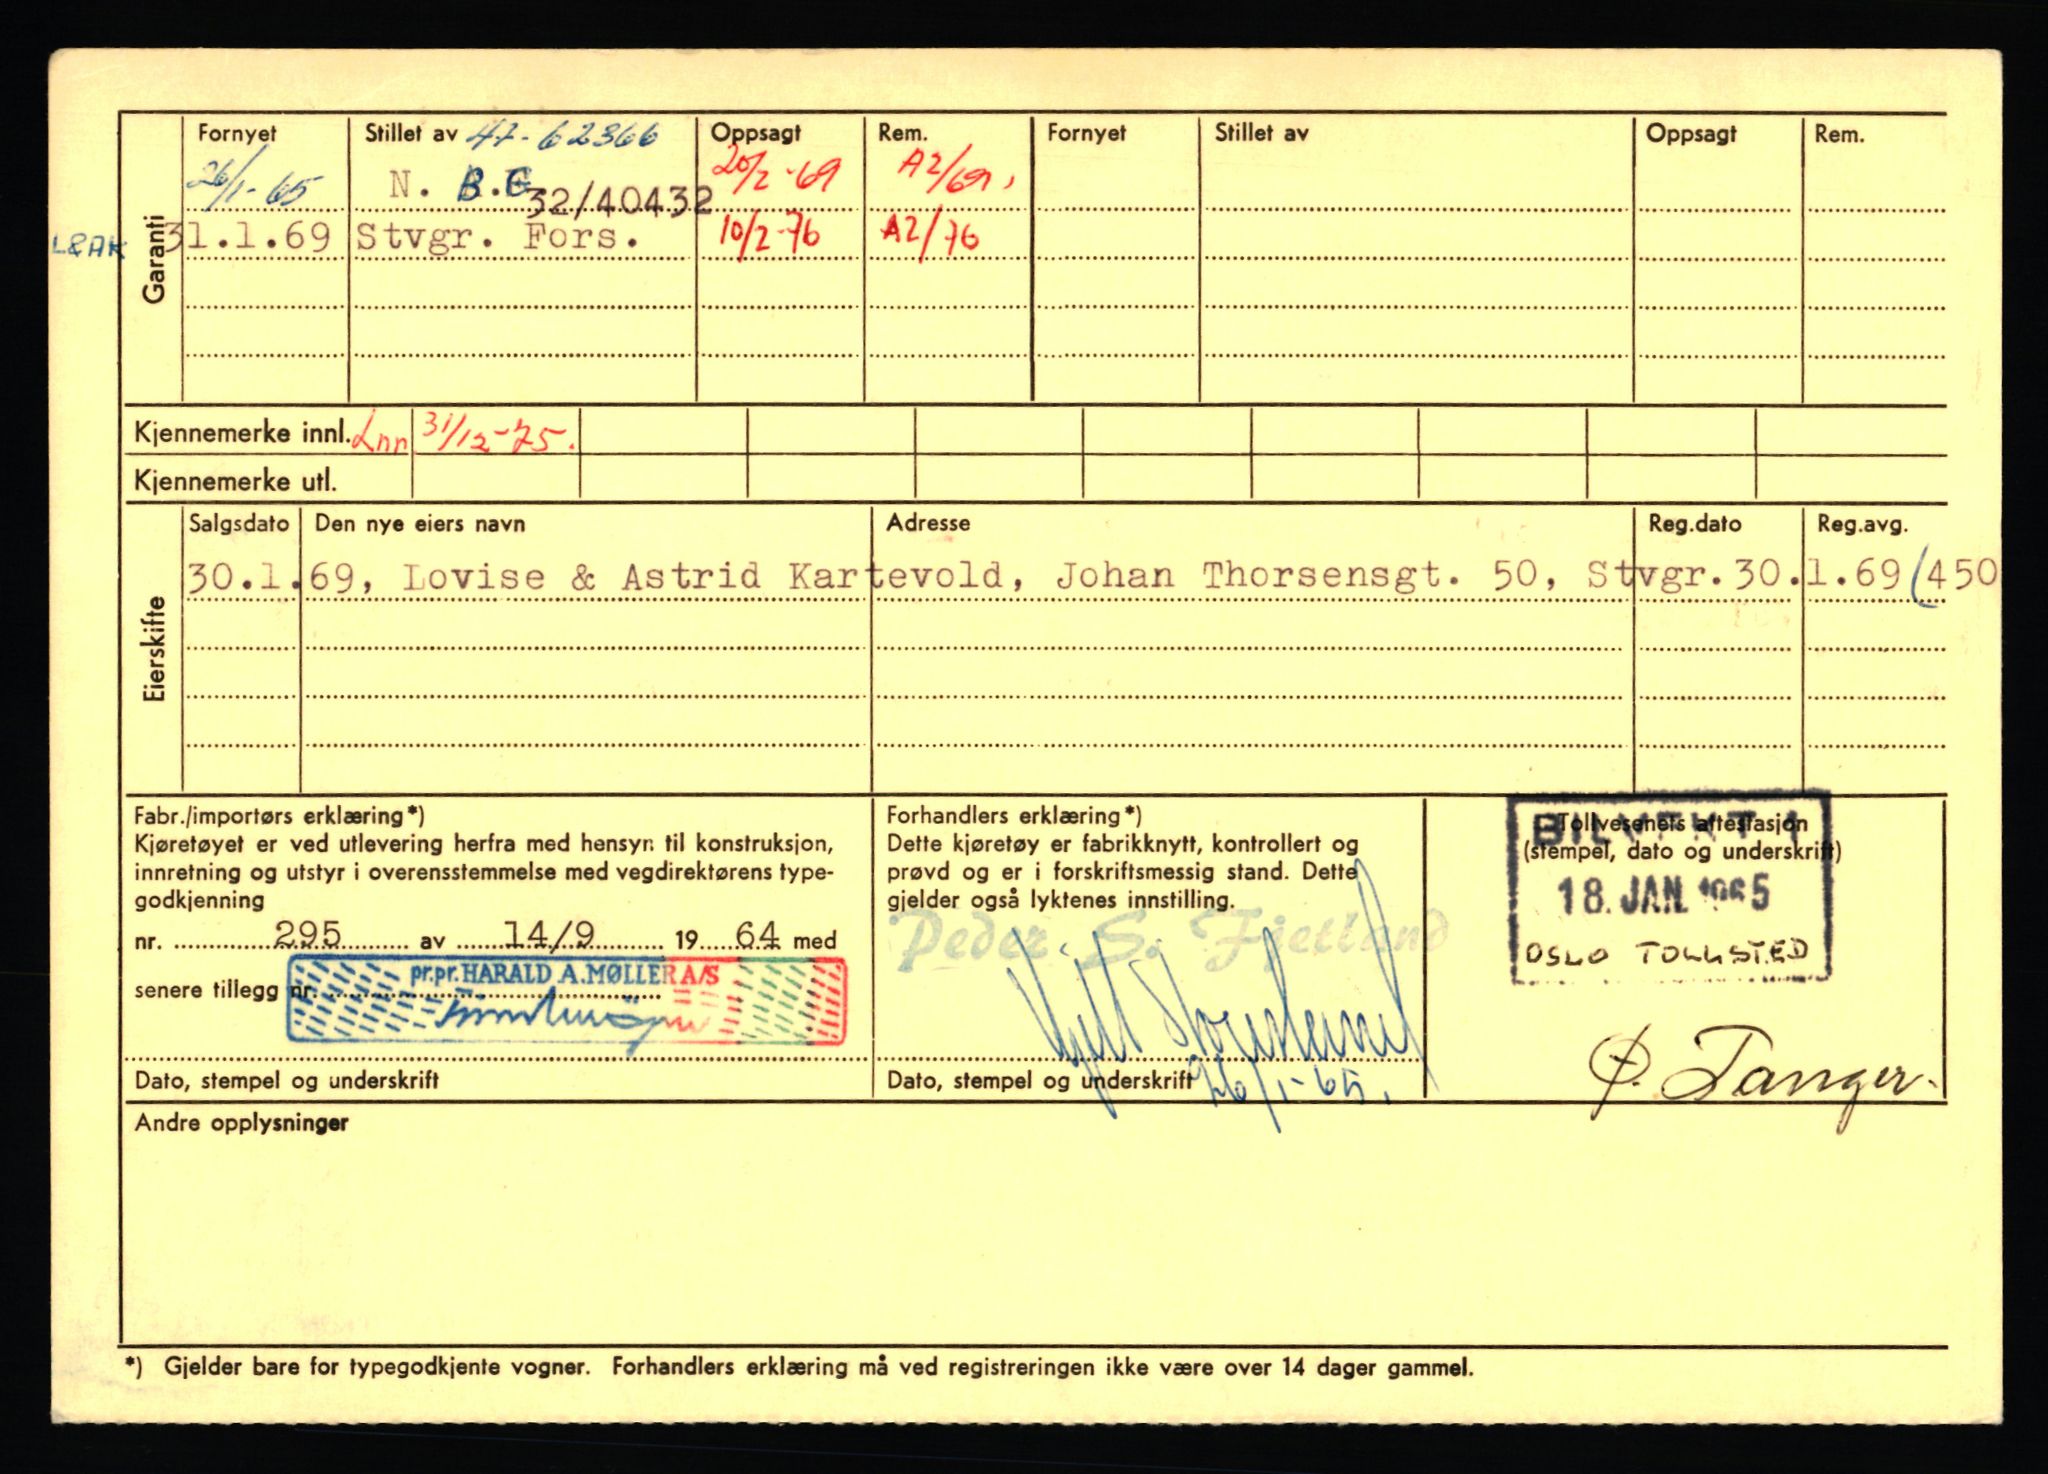 Fornyet Stillet av 47-62366 Oppsagt Rem. Fornyet Stillet av Oppsagt Rem.
26/1-65 N. B.C 32/40432 20/2-69 A2/69,
L&AK 31.1.69 Stvgr. Fors. 10/2-76 A2/76
Garanti
Kjennemerke innl. Lnr. 31/12-75.
Kjennemerke utl.
Eierskifte
Salgsdato Den nye eiers navn Adresse Reg.dato Reg.avg.
30.1.69, Lovise & Astrid Kartevold, Johan Thorsensgt. 50, Stvgr. 30.1.69 (450
Fabr./importørs erklæring*)
Kjøretøyet er ved utlevering herfra med hensyn til konstruksjon,
innretning og utstyr i overensstemmelse med vegdirektørens type-
godkjenning
nr. 295 av 14/9 19 64 med
senere tillegg nr.
pr.pr. HARALD A. MØLLER A/S
Dato, stempel og underskrift
Forhandlers erklæring*)
Dette kjøretøy er fabrikknytt, kontrollert og
prøvd og er i forskriftsmessig stand. Dette
gjelder også lyktenes innstilling.
Peder S. Fjetland
Dato, stempel og underskrift
26/1-65.
Tollvesenets attestasjon
(stempel, dato og underskrift)
18. JAN. 1965
OSLO TOLLSTED
P. Tanger.
Andre opplysninger
*) Gjelder bare for typegodkjente vogner. Forhandlers erklæring må ved registreringen ikke være over 14 dager gammel.